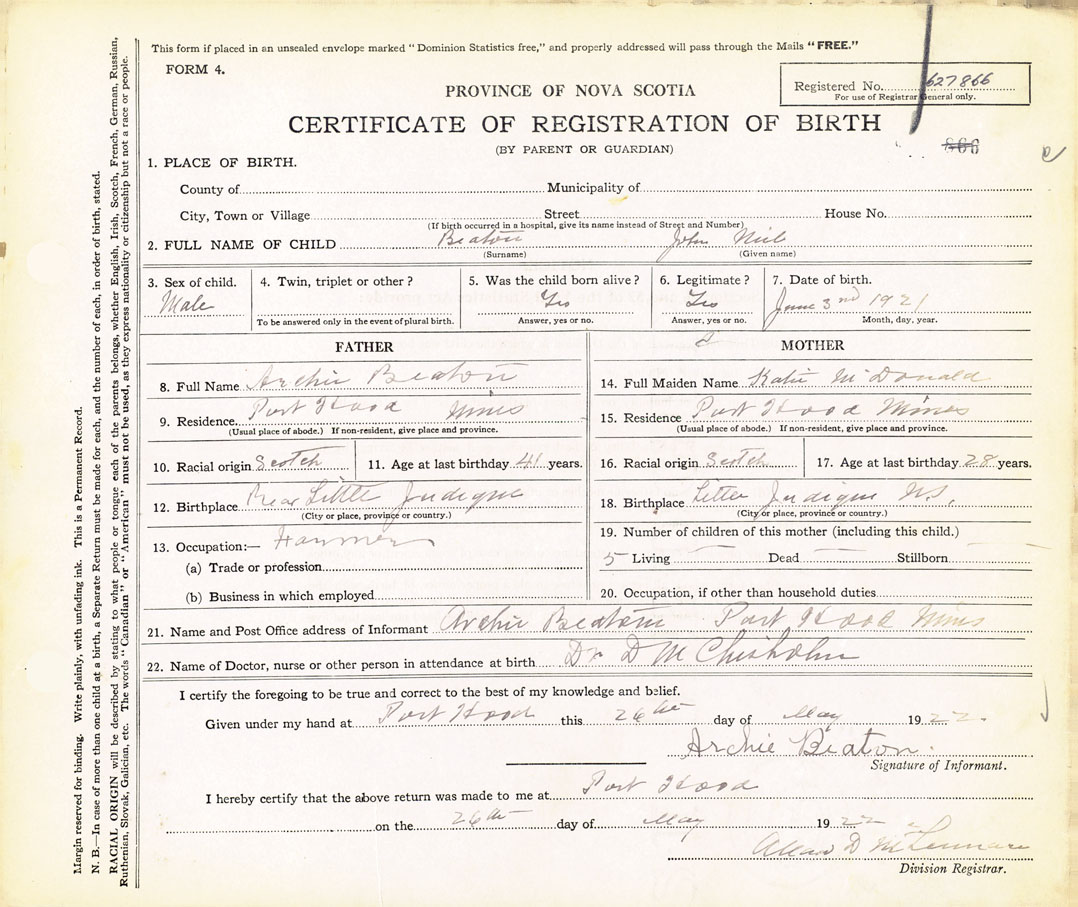 This form if placed in an unsealed envelope marked “Dominion Statistics free,” and properly addressed will pass through the Mails “FREE.”
FORM 4.
Registered No. 627866
For use of Registrar General only.
PROVINCE OF NOVA SCOTIA
CERTIFICATE OF REGISTRATION OF BIRTH
(BY PARENT OR GUARDIAN)
866
1. PLACE OF BIRTH.
County of Municipality of
City, Town or Village Street House No.
(If birth occurred in a hospital, give its name instead of Street and Number)
2. FULL NAME OF CHILD Beaton John Niel
(Surname) (Given name)
3. Sex of child. 4. Twin, triplet or other? 5. Was the child born alive? 6. Legitimate? 7. Date of birth.
Male Yes Yes June 3nd 1921
To be answered only in the event of plural birth. Answer, yes or no. Answer, yes or no. Month, day, year.
FATHER
8. Full Name Archie Beaton
9. Residence Port Hood Mines
(Usual place of abode.) If non-resident, give place and province.
10. Racial origin Scotch 11. Age at last birthday 41 years.
12. Birthplace Rear Little Judique
(City or place, province or country.)
13. Occupation:— Farmer
(a) Trade or profession
(b) Business in which employed
MOTHER
14. Full Maiden Name Katie McDonald
15. Residence Port Hood Mines
(Usual place of abode.) If non-resident, give place and province.
16. Racial origin Scotch 17. Age at last birthday 28 years.
18. Birthplace Little Judique N.S.
(City or place, province or country.)
19. Number of children of this mother (including this child.)
5 Living Dead Stillborn
20. Occupation, if other than household duties
21. Name and Post Office address of Informant Archie Beaton Port Hood Mines
22. Name of Doctor, nurse or other person in attendance at birth Dr D M Chisholm
I certify the foregoing to be true and correct to the best of my knowledge and belief.
Given under my hand at Port Hood this 26th day of May 1922.
Archie Beaton.
Signature of Informant.
I hereby certify that the above return was made to me at Port Hood
on the 26th day of May 1922
Allan D McLennan
Division Registrar.
Margin reserved for binding. Write plainly, with unfading ink. This is a Permanent Record.
N. B.—In case of more than one child at a birth, a Separate Return must be made for each, and the number of each, in order of birth, stated.
RACIAL ORIGIN will be described by stating to what people or tongue each of the parents belongs, whether English, Irish, Scotch, French, German, Russian,
Ruthenian, Slovak, Galician, etc. The words “Canadian” or “American” must not be used, as they express nationality or citizenship but not a race or people.